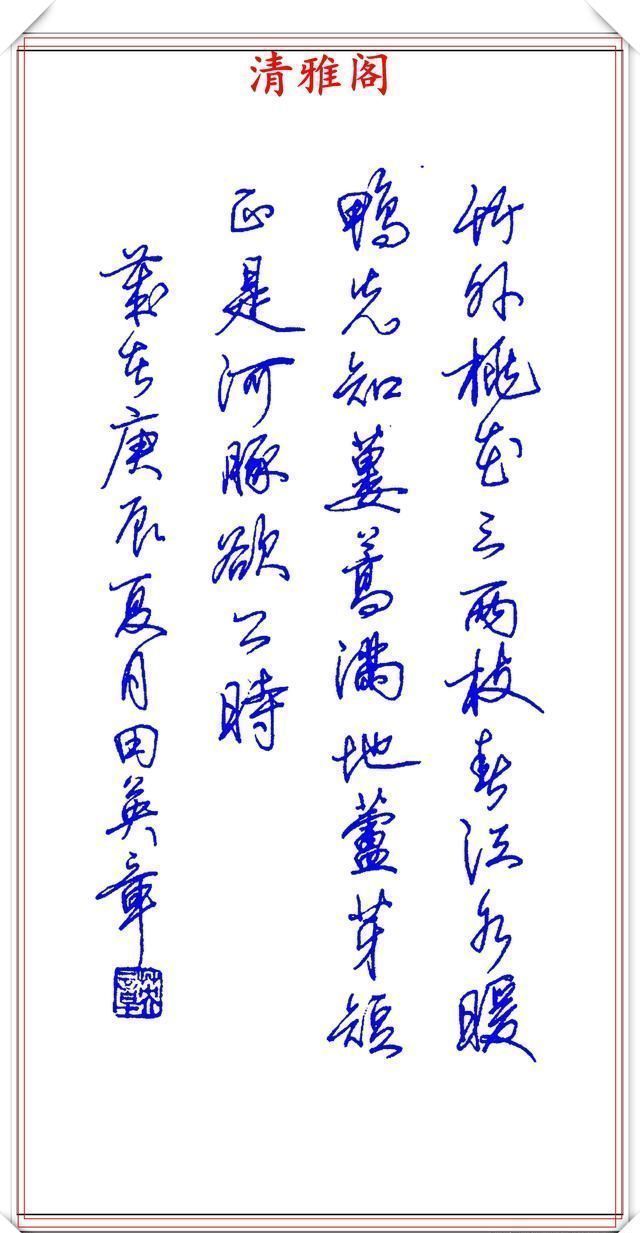 清雅阁
竹外桃花三两枝春江水暖
鴨先知蔞蒿滿地蘆芽短
正是河豚欲上時
歲在庚辰夏月田英章
英章